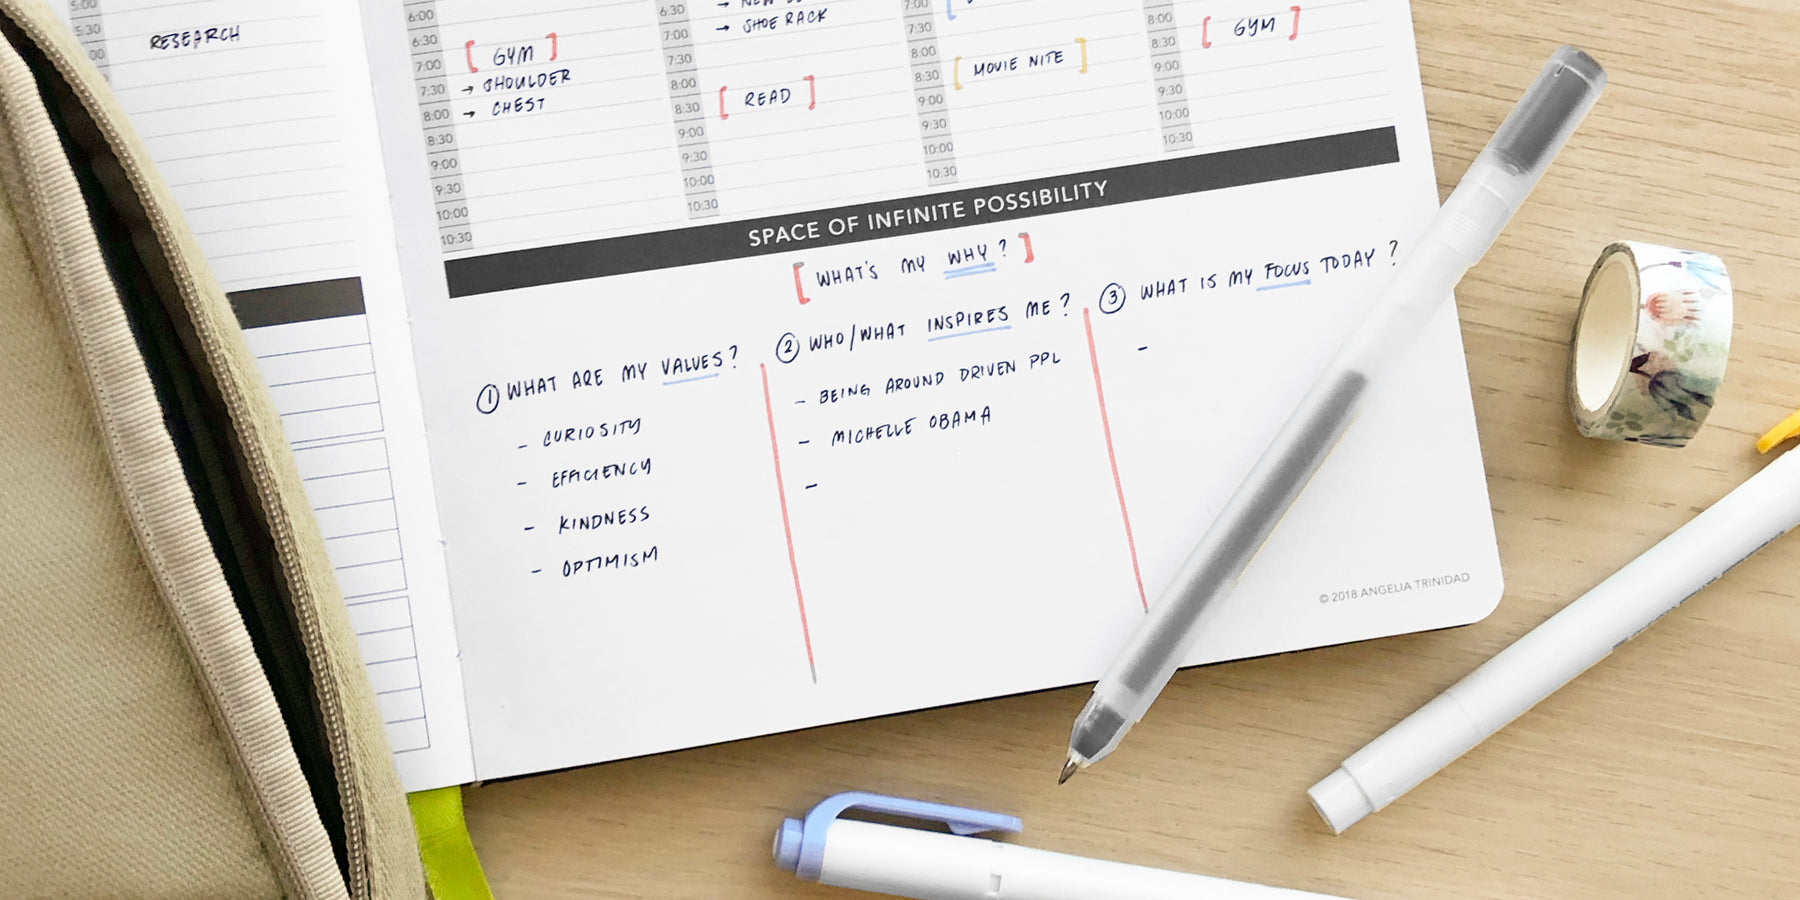 5:00
5:30
RESEARCH
6:00
6:30
[ GYM ]
7:00
7:30
→ SHOULDER
8:00
→ CHEST
8:30
9:00
9:30
10:00
10:30
6:30
7:00
→ SHOE RACK
7:30
8:00
8:30
[ READ ]
9:00
9:30
10:00
10:30
7:00
7:30
8:00
[ MOVIE NITE ]
8:30
9:00
9:30
10:00
10:30
8:00
[ GYM ]
8:30
9:00
9:30
10:00
10:30
SPACE OF INFINITE POSSIBILITY
[ WHAT'S MY WHY? ]
① WHAT ARE MY VALUES?
- CURIOSITY
- EFFICIENCY
- KINDNESS
- OPTIMISM
② WHO/WHAT INSPIRES ME?
- BEING AROUND DRIVEN PPL
- MICHELLE OBAMA
-
③ WHAT IS MY FOCUS TODAY?
-
© 2018 ANGELIA TRINIDAD